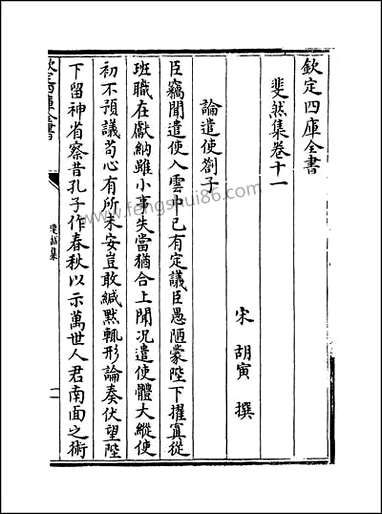 欽定四庫全書
斐然集卷十一
宋 胡寅 撰
論遣使劄子
臣竊聞遣使入雲中已有定議臣愚陋蒙陛下擢寘從
班職在獻納雖小事失當猶合上聞况遣使體大縱使
初不預議苟心有所未安豈敢緘默輒形論奏伏望陛
下留神省察昔孔子作春秋以示萬世人君南面之術
欽定四庫全書
斐然集
一
www.fengshui86.com